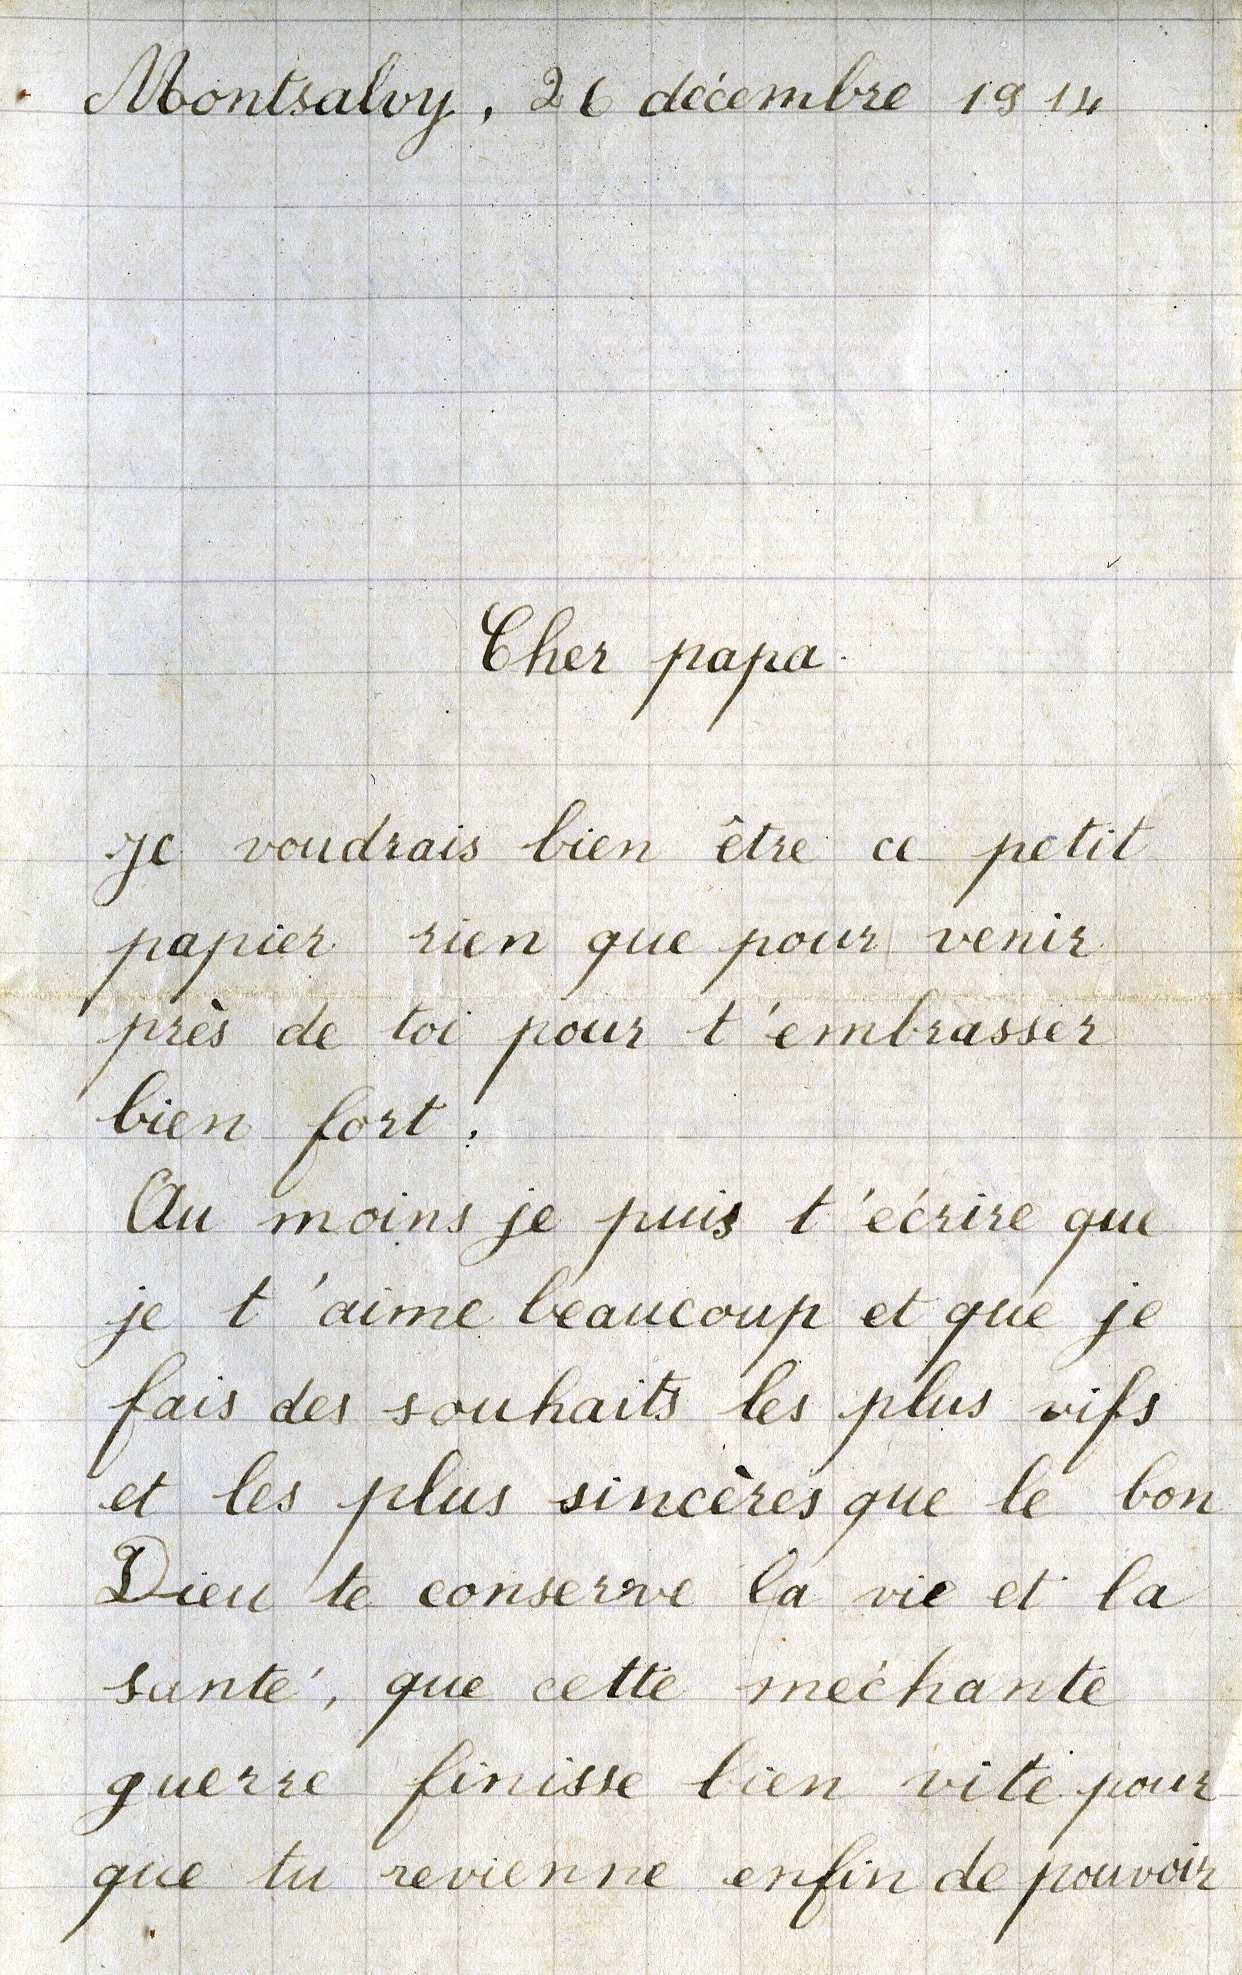 Montsalvy, 26 décembre 1914
Cher papa.
Je voudrais bien être ce petit
papier rien que pour venir
près de toi pour t'embrasser
bien fort.
Au moins je puis t'écrire que
je t'aime beaucoup et que je
fais des souhaits les plus vifs
et les plus sincères que le bon
Dieu te conserve la vie et la
santé, que cette méchante
guerre finisse bien vite pour
que tu revienne enfin de pouvoir